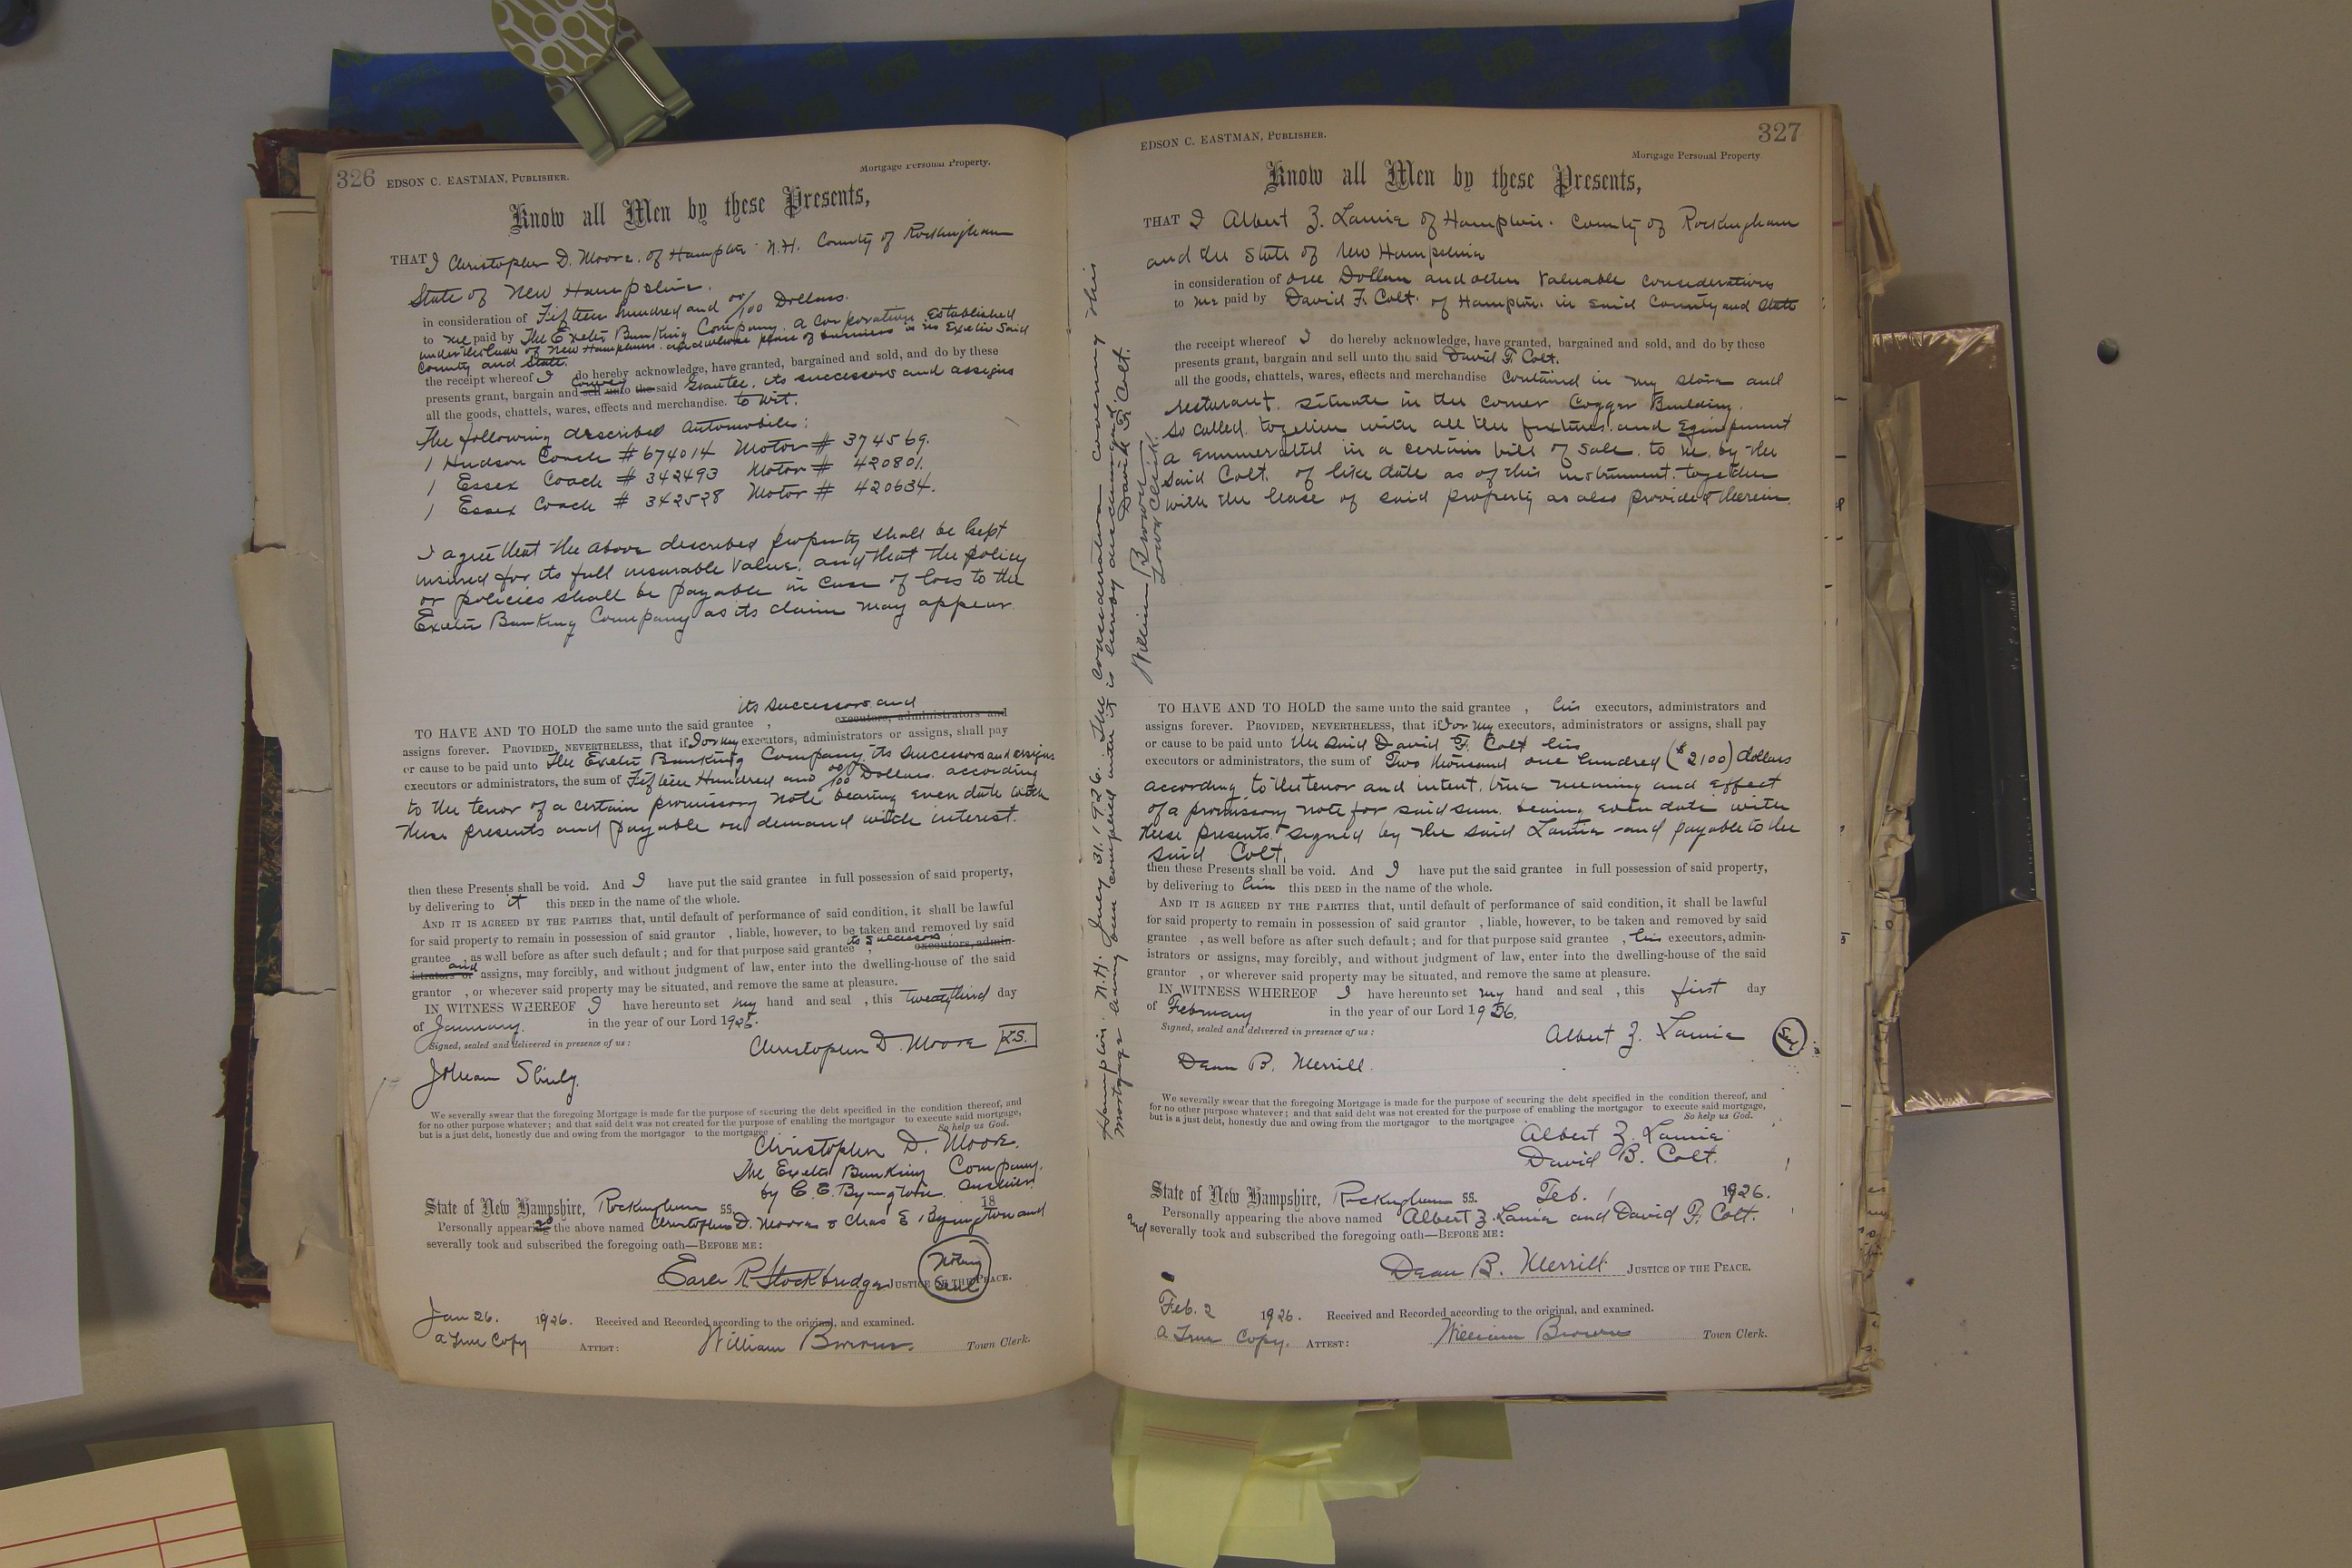 326 EDSON C. EASTMAN, PUBLISHER.
Mortgage Personal Property.
Know all Men by these Presents,
THAT I Christopher D. Moore, of Hampton N.H. County of Rockingham
State of New Hampshire.
in consideration of Fifteen hundred and 00/100 Dollars.
to me paid by The Exeter Banking Company. a corporation established
under the laws of New Hampshire. and whose place of business is in Exeter Said
County and State.
the receipt whereof I do hereby acknowledge, have granted, bargained and sold, and do by these
presents grant, bargain and sell unto convey the said Grantee, its successors and assigns
all the goods, chattels, wares, effects and merchandise. to wit.
The following described Automobile:
1 Hudson Coach # 674014 Motor # 374569.
1 Essex Coach # 342493 Motor # 420801.
1 Essex Coach # 342528 Motor # 420634.
I agree that the above described property shall be kept
insured for its full insurable value. and that the policy
or policies shall be payable in case of loss to the
Exeter Banking Company as its claim may appear.
its successors and
TO HAVE AND TO HOLD the same unto the said grantee , executors, administrators and
assigns forever. PROVIDED, NEVERTHELESS, that if I or my executors, administrators or assigns, shall pay
or cause to be paid unto The Exeter Banking Company, its successors and assigns
executors or administrators, the sum of Fifteen Hundred and 00/100 Dollars. according
to the tenor of a certain promissory note bearing even date with
these presents and payable on demand with interest.
then these Presents shall be void. And I have put the said grantee in full possession of said property,
by delivering to it this DEED in the name of the whole.
AND IT IS AGREED BY THE PARTIES that, until default of performance of said condition, it shall be lawful
for said property to remain in possession of said grantor , liable, however, to be taken and removed by said
grantee , as well before as after such default ; and for that purpose said grantee , its successors executors, admin-
istrators or and assigns, may forcibly, and without judgment of law, enter into the dwelling-house of the said
grantor , or wherever said property may be situated, and remove the same at pleasure.
IN WITNESS WHEREOF I have hereunto set my hand and seal , this twenty third day
of January. in the year of our Lord 1926.
Signed, sealed and delivered in presence of us :
Christopher D. Moore L.S.
We severally swear that the foregoing Mortgage is made for the purpose of securing the debt specified in the condition thereof, and
for no other purpose whatever ; and that said debt was not created for the purpose of enabling the mortgagor to execute said mortgage,
but is a just debt, honestly due and owing from the mortgagor to the mortgagee So help us God.
Christopher D. Moore.
The Exeter Banking Company.
by C. E. Byington. Cashier.
State of New Hampshire, Rockingham ss. 18
Personally appearing the above named Christopher D. Moore & Chas E. Byington and
severally took and subscribed the foregoing oath—BEFORE ME :
Earle R Stockbridge JUSTICE OF THE PEACE.
Notary Seal
Jan 26. 1926. Received and Recorded according to the original, and examined.
a True Copy ATTEST : William Brown. Town Clerk.
EDSON C. EASTMAN, PUBLISHER. 327
Mortgage Personal Property
Know all Men by these Presents,
THAT I Albert Z. Lamie of Hampton. County of Rockingham
and the State of New Hampshire
in consideration of one Dollar and other Valuable considerations
to me paid by David F. Colt. of Hampton. in said County and State
the receipt whereof I do hereby acknowledge, have granted, bargained and sold, and do by these
presents grant, bargain and sell unto the said David F. Colt.
all the goods, chattels, wares, effects and merchandise contained in my store and
resturant. situate in the corner Cogger Building.
so called. together with all the fixtures. and Equipment
a enumerated in a certain bill of sale. to me. by the
said Colt. of like date as of this instrument. together
with the lease of said property as also provided therein.
TO HAVE AND TO HOLD the same unto the said grantee , his executors, administrators and
assigns forever. PROVIDED, NEVERTHELESS, that if I or my executors, administrators or assigns, shall pay
or cause to be paid unto the said David F. Colt his
executors or administrators, the sum of Two thousand one hundred ($2100) dollars
according to the tenor and intent, true meaning and effect
of a promissory note for said sum. bearing even date with
these presents. signed by the said Lamie and payable to the
said Colt.
then these Presents shall be void. And I have put the said grantee in full possession of said property,
by delivering to him this DEED in the name of the whole.
AND IT IS AGREED BY THE PARTIES that, until default of performance of said condition, it shall be lawful
for said property to remain in possession of said grantor , liable, however, to be taken and removed by said
grantee , as well before as after such default ; and for that purpose said grantee , his executors, admin-
istrators or assigns, may forcibly, and without judgment of law, enter into the dwelling-house of the said
grantor , or wherever said property may be situated, and remove the same at pleasure.
IN WITNESS WHEREOF I have hereunto set my hand and seal , this first day
of February in the year of our Lord 1926.
Signed, sealed and delivered in presence of us :
Albert Z. Lamie Seal
Dean B. Merrill.
We severally swear that the foregoing Mortgage is made for the purpose of securing the debt specified in the condition thereof, and
for no other purpose whatever ; and that said debt was not created for the purpose of enabling the mortgagor to execute said mortgage,
but is a just debt, honestly due and owing from the mortgagor to the mortgagee So help us God.
Albert Z. Lamie
David B. Colt.
State of New Hampshire, Rockingham ss. Feb. 1 1926.
Personally appearing the above named Albert Z. Lamie and David F. Colt.
and severally took and subscribed the foregoing oath—BEFORE ME :
Dean B. Merrill JUSTICE OF THE PEACE.
Feb. 2 1926. Received and Recorded according to the original, and examined.
a True Copy. ATTEST : William Brown Town Clerk.
Hampton. N.H. July 31. 1926. The consideration covering this
mortgage having been complied with it is hereby discharged
David F. Colt.
William Brown
Town Clerk.